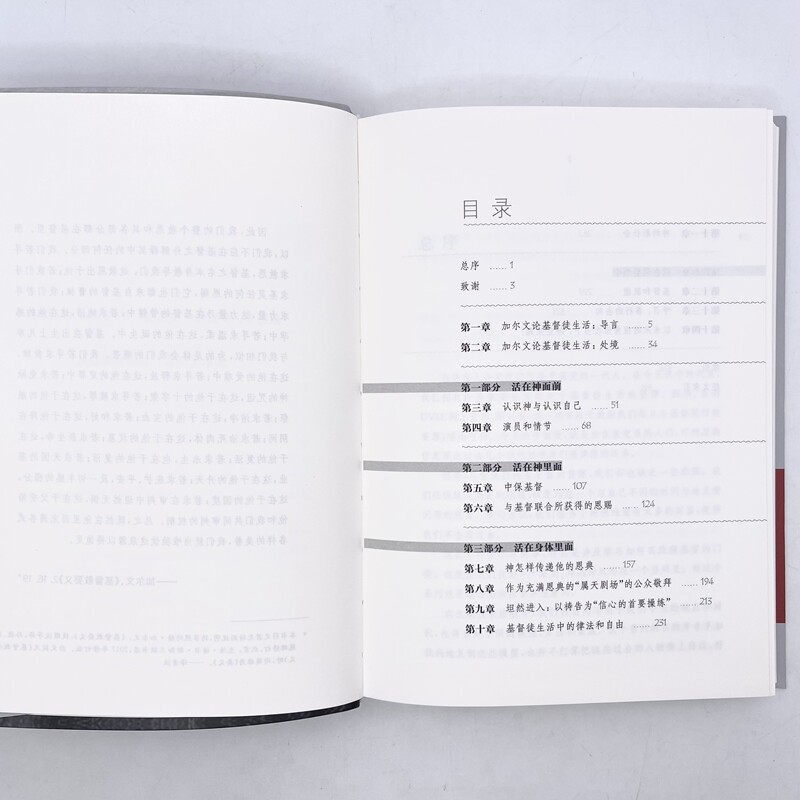 目录
总序 ……1
致谢 ……3
第一章 加尔文论基督徒生活：导言 ……5
第二章 加尔文论基督徒生活：处境 ……34
第一部分 活在神面前
第三章 认识神与认识自己 ……51
第四章 演员和情节 ……68
第二部分 活在神里面
第五章 中保基督 ……107
第六章 与基督联合所获得的恩赐 ……124
第三部分 活在身体里面
第七章 神怎样传递他的恩典 ……157
第八章 作为充满恩典的“属天剧场”的公众敬拜 ……194
第九章 坦然进入：以祷告为“信心的首要操练” ……213
第十章 基督徒生活中的律法和自由 ……231